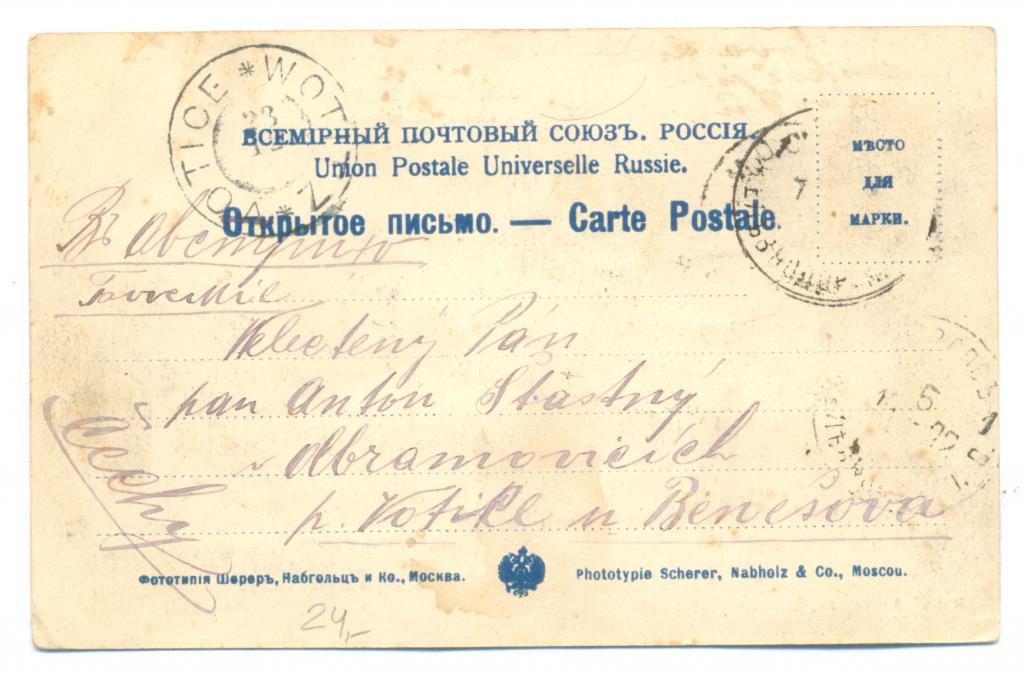 WOTITZ * VOTICE *
23
ВСЕМІРНЫЙ ПОЧТОВЫЙ СОЮЗЪ. РОССІЯ.
Union Postale Universelle Russie.
МѢСТО
ДЛЯ
МАРКИ.
7
Открытое письмо. — Carte Postale.
Въ Австрію
Velectěný Pán
pan Anton Šťastný
v Abramovicích
p. Votice u Benešova
Čechy
5
1
Фототипія Шереръ, Набгольцъ и Ко., Москва.
Phototypie Scherer, Nabholz & Co., Moscou.
24,-